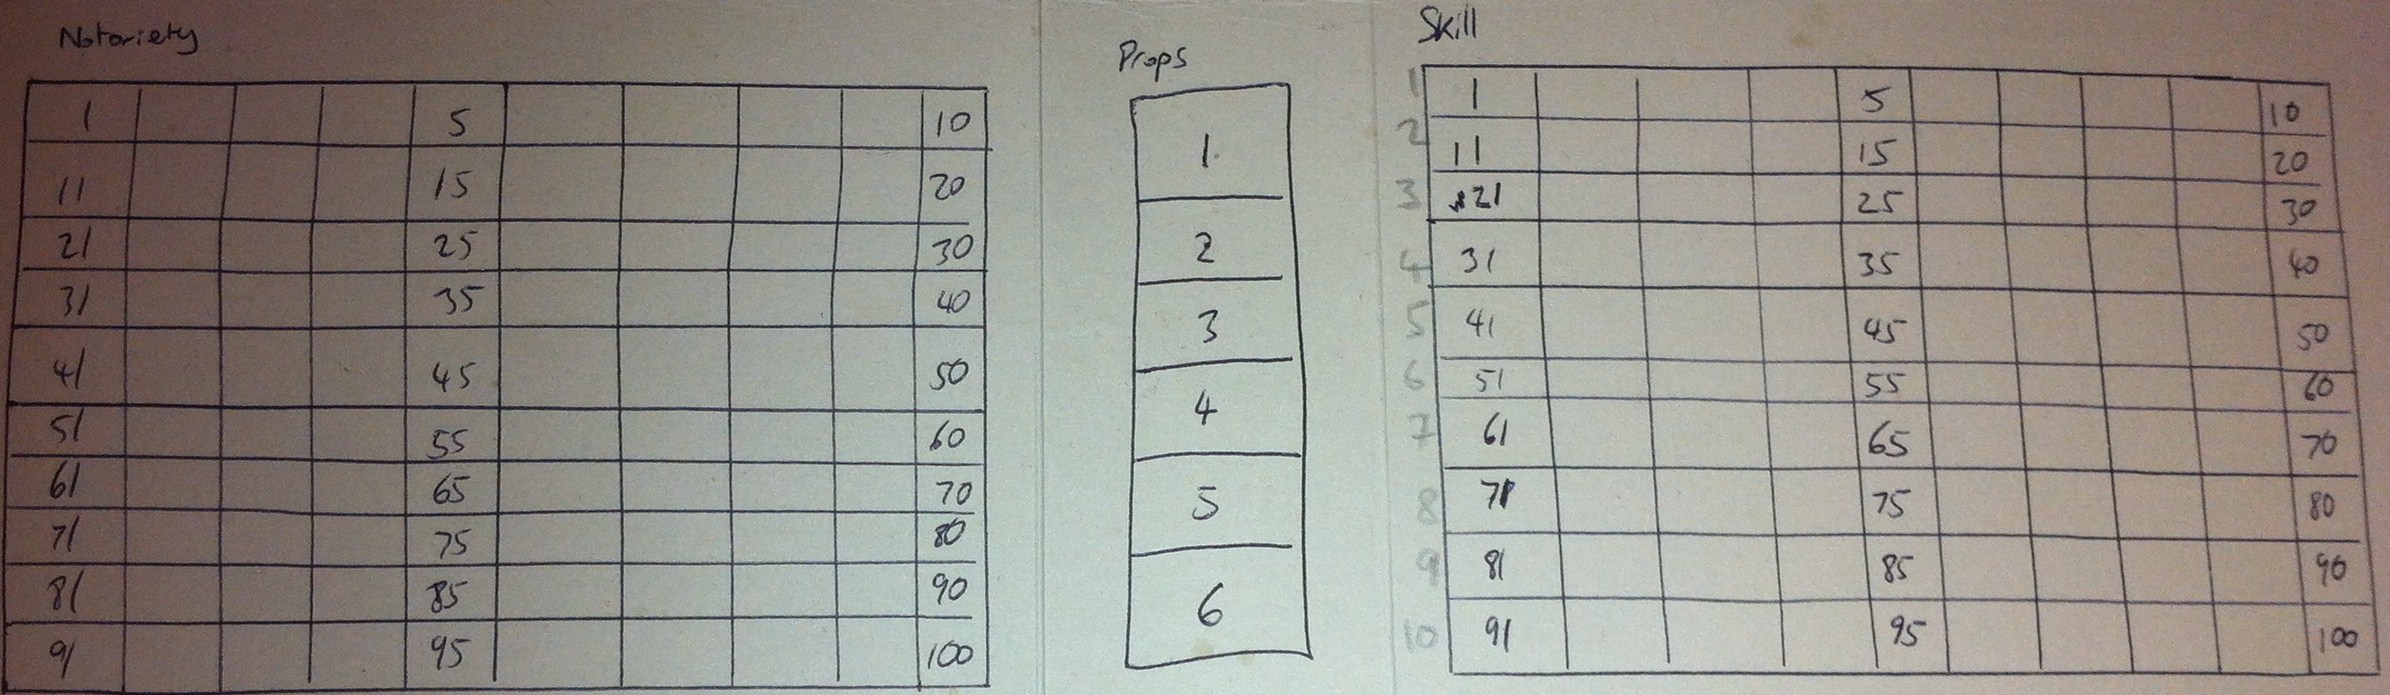 Notoriety
1 5 10
11 15 20
21 25 30
31 35 40
41 45 50
51 55 60
61 65 70
71 75 80
81 85 90
91 95 100
Props
1
2
3
4
5
6
Skill
1 1 5 10
2 11 15 20
3 21 25 30
4 31 35 40
5 41 45 50
6 51 55 60
7 61 65 70
8 71 75 80
9 81 85 90
10 91 95 100